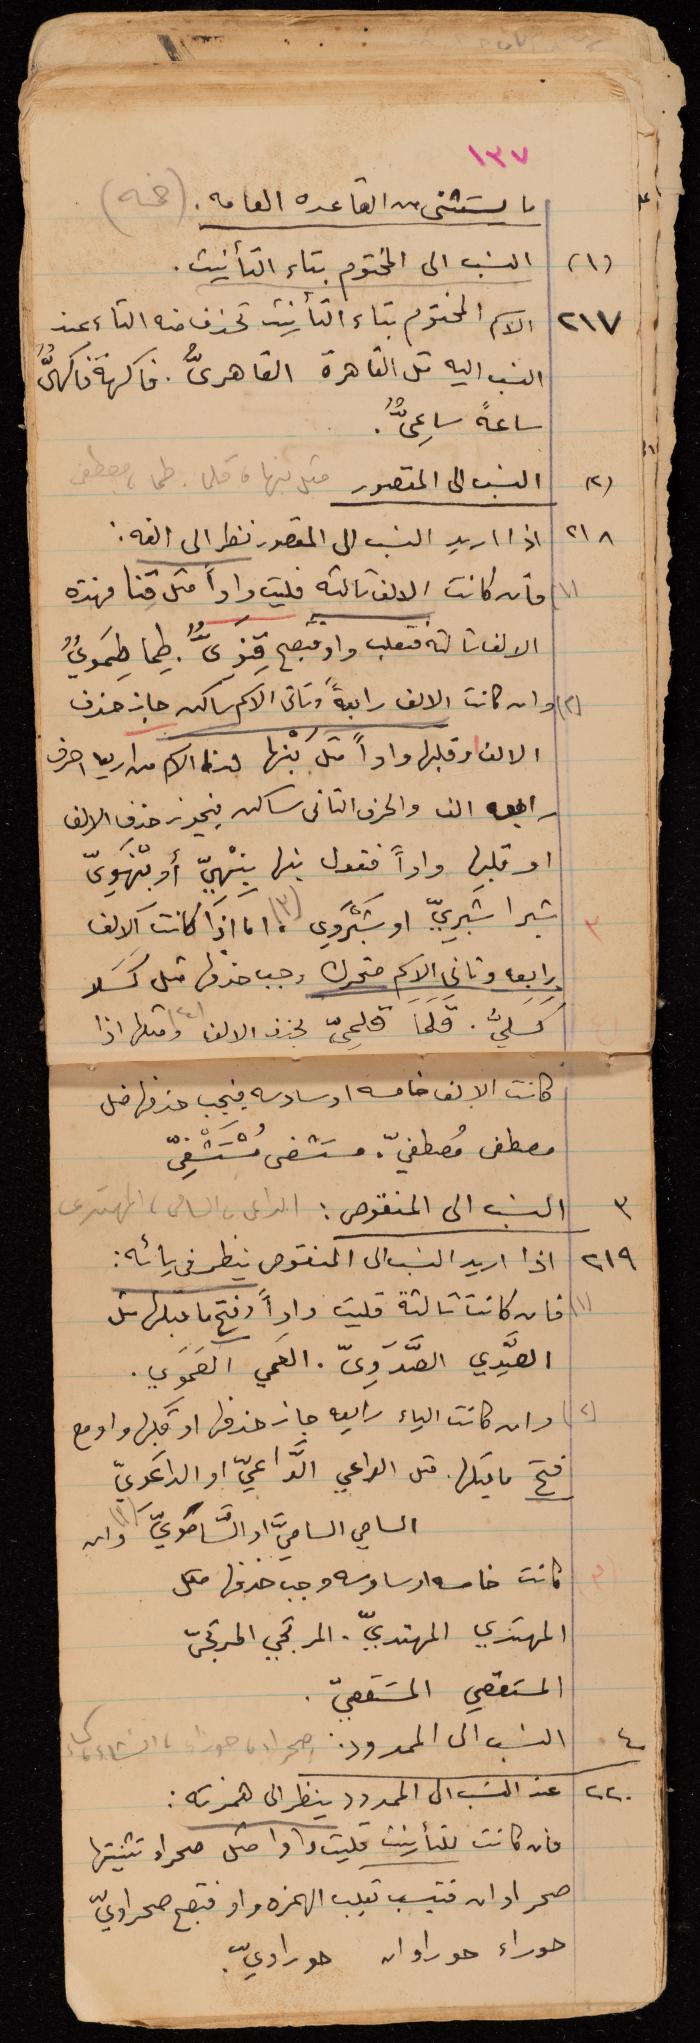 ١٣٧
ما يستثنى من القاعده العامه . (خمسه)
(١) النسب الى المختوم بتاء التأنيث .
٢١٧ الاسم المختوم بتاء التأنيث تحذف منه التاء عند
النسب اليه مثل القاهرة القاهرىٌّ . فاكهة فاكهىٌّ
ساعةً ساعِىٌّ .
(٢) النسب الى المقصور مثل بنها ، قلما . طما ، مصطفى
٢١٨ اذا اريد النسب الى المقصور نظر الى الفه :
(١) فان كانت الالف ثالثه قلبت واواً مثل قِنا فهذه
الالف ثالثة فتقلب واو فتصبح قِنَوِىٌّ . طِما طِمَوِيٌّ
(٢) وان كانت الالف رابعةً وثانى الاسم ساكن جاز حذف
الالف وقلبها واواً مثل بَنْها فهذا الاسم من اربعه احرف
رابعه الف والحرف الثانى ساكن فيجوز حذف الالف
او قلبها واواً فنقول بنها بِنْهِيّ أو بنْهَوِىّ
شبرا شَبرِيّ او شَبْرَوِي . (٣) اما اذا كانت الالف ٣
رابعه وثاني الاسم متحرك وجب حذفها مثل كَسَلا
كَسَلِيُّ . قَلَمَا قلمِيّ بحذف الالف (٤) ومثلها اذا
كانت الالف خامسه او سادسه فيجب حذفها مثل
مصطفى مُصطفيّ . مستشفى مُسْتَشْفِىّ
٣ النسب الى المنقوص : الداعى ، السامى ، المهتدى
٢١٩ اذا اريد النسب الى المنقوص ينظر فى يائه :
(١) فان كانت ثالثة قلبت واواً وفتح ما قبلها مثل
الصَّدِي الصَّدَوِىّ . العَمي العَمَوِي .
(٢) وان كانت الياء رابعه جاز حذفها او قلبها واو مع
فتح ما قبلها . مثل الداعي الدَّاعيّ او الداعَوِيّ
السامي الساميّ او السَّامَوِيّ (٣) وان
(٣) كانت خامسه او سادسه وجب حذفها مثل
المهتدي المهتديّ . المرتجي المرتجىّ
المستقصي المستقصيّ .
٤ النسب الى الممدود : صحراء ، حوراء ، انشاء ،
٢٢٠ عند النسب الى الممدود ينظر الى همزته :
فان كانت للتأنيث قلبت واوا مثل صحراء تثنيتها
صحراوان فتنسب تقلب الهمزه واو فتصبح صحراوىّ
حوراء حوراوان حوراوىّ .